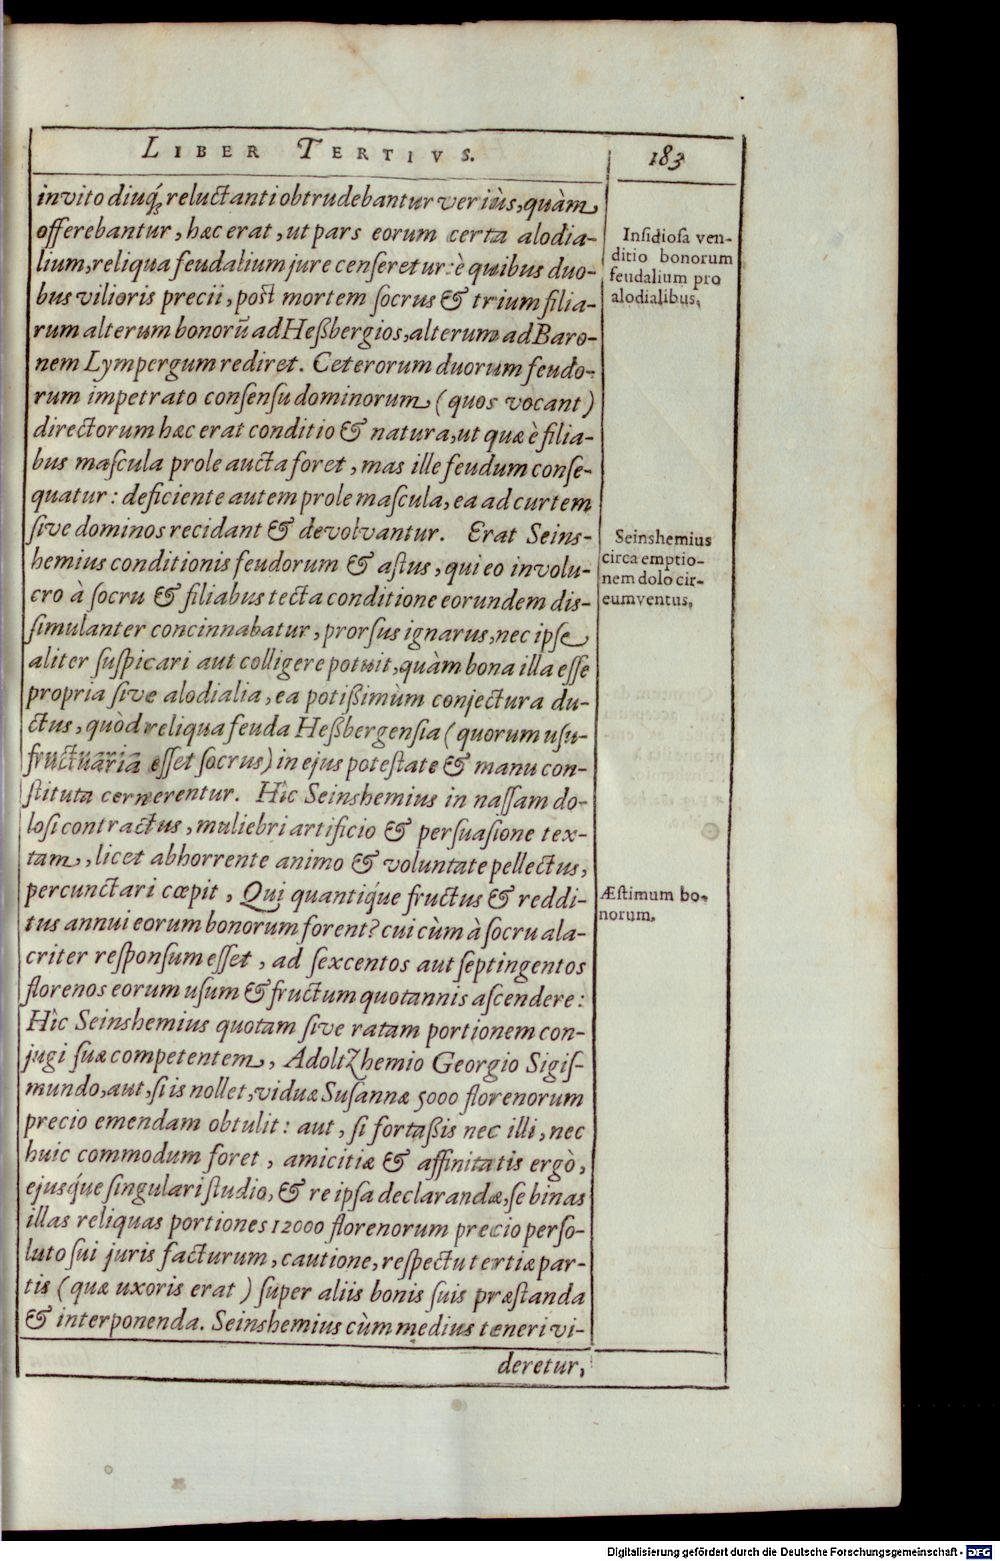 LIBER TERTIVS.
183
invito diuq́; reluctanti obtrudebantur veriùs, quàm
offerebantur, hæc erat, ut pars eorum certa alodia-
lium, reliqua feudalium jure censeretur: è quibus duo-
bus vilioris precii, post mortem socrus & trium filia-
rum alterum bonorũ ad Heßbergios, alterum ad Baro-
nem Lympergum rediret. Ceterorum duorum feudo-
rum impetrato consensu dominorum (quos vocant)
directorum hæc erat conditio & natura, ut quæ è filia-
bus mascula prole aucta foret, mas ille feudum conse-
quatur: deficiente autem prole mascula, ea ad curtem
sive dominos recidant & devolvantur. Erat Seins-
hemius conditionis feudorum & astus, qui eo involu-
cro à socru & filiabus tecta conditione eorundem dis-
simulanter concinnabatur, prorsus ignarus, nec ipse
aliter suspicari aut colligere potuit, quàm bona illa esse
propria sive alodialia, ea potißimùm conjectura du-
ctus, quòd reliqua feuda Heßbergensia (quorum usu-
fructuaria esset socrus) in ejus potestate & manu con-
stituta cernerentur. Hîc Seinshemius in nassam do-
losi contractus, muliebri artificio & persuasione tex-
tam, licet abhorrente animo & voluntate pellectus,
percunctari cœpit, Qui quantiq́ue fructus & reddi-
tus annui eorum bonorum forent? cui cùm à socru ala-
criter responsum esset, ad sexcentos aut septingentos
florenos eorum usum & fructum quotannis ascendere:
Hîc Seinshemius quotam sive ratam portionem con-
jugi suæ competentem, Adoltzhemio Georgio Sigis-
mundo, aut, si is nollet, viduæ Susannæ 5000 florenorum
precio emendam obtulit: aut, si fortaßis nec illi, nec
huic commodum foret, amicitiæ & affinitatis ergò,
ejusq́ue singulari studio, & re ipsa declarandæ, se binas
illas reliquas portiones 12000 florenorum precio perso-
luto sui juris facturum, cautione, respectu tertiæ par-
tis (quæ uxoris erat) super aliis bonis suis præstanda
& interponenda. Seinshemius cùm medius teneri vi-
deretur,
Insidiosa ven-
ditio bonorum
feudalium pro
alodialibus.
Seinshemius
circa emptio-
nem dolo cir-
cumventus.
Æstimum bo-
norum.
Digitalisierung gefördert durch die Deutsche Forschungsgemeinschaft - DFG